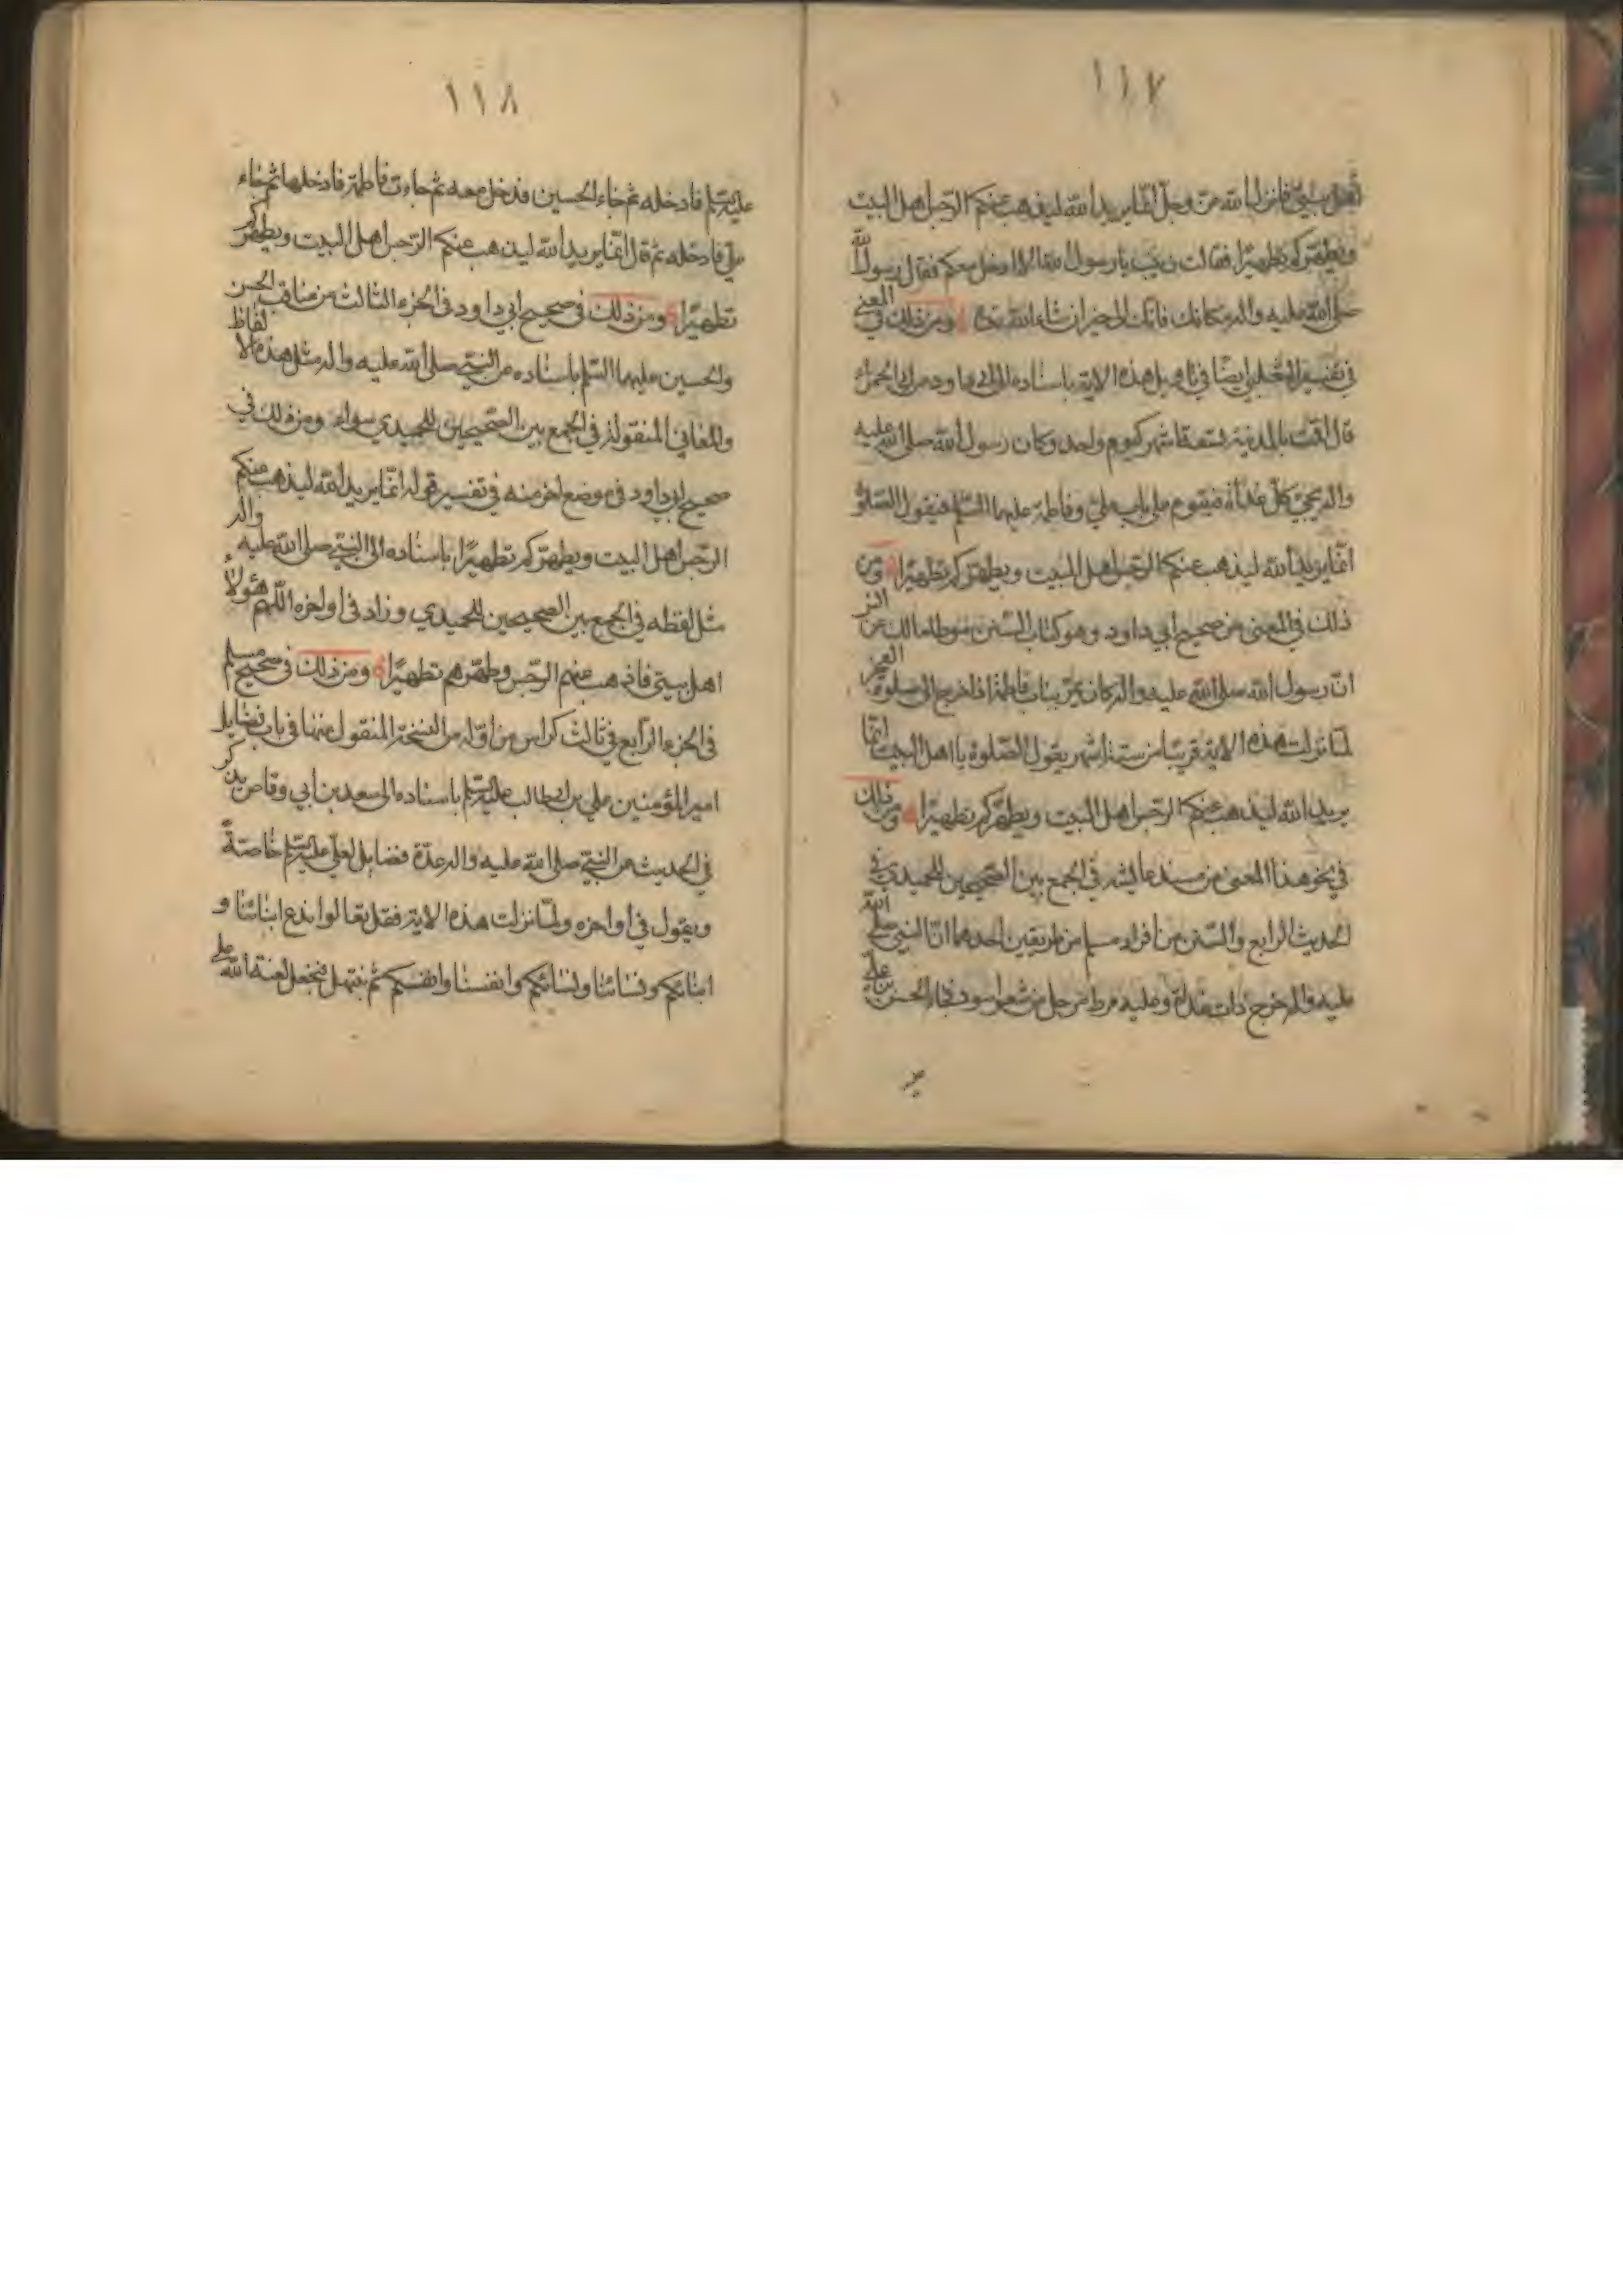 ١١٧
أهل بيتي فانزل الله عز وجل انما يريد الله ليذهب عنكم الرجس اهل البيت
ويطهركم تطهيرًا فقالت زينب يا رسول الله الا ادخل معكم فقال رسول الله
صلى الله عليه واله مكانك فانك الى خير ان شاء الله تعالى ومن ذلك في المعنى
في تفسير الثعلبي ايضًا في تاويل هذه الاية باسناده الى ابي داود عن ابي الحمراء
قال اقمت بالمدينة تسعة اشهر كيوم واحد وكان رسول الله صلى الله عليه
واله يجيئ كل غداة فيقوم على باب علي وفاطمة عليهما السلم فيقول الصلوة
انما يريد الله ليذهب عنكم الرجس اهل البيت ويطهركم تطهيرًا ومن
ذلك في المعنى من صحيح ابي داود وهو كتاب السنن موطا مالك عن انس
ان رسول الله صلى الله عليه واله كان يمر بباب فاطمة اذا خرج الى صلوة الفجر
لما نزلت هذه الاية قريبًا من ستة اشهر يقول الصلوة يا اهل البيت انما
يريد الله ليذهب عنكم الرجس اهل البيت ويطهركم تطهيرًا ومن ذلك
في نحو هذا المعنى من مسند عايشه في الجمع بين الصحيحين للحميدي في
الحديث الرابع والستين من افراد مسلم من طريقين احدهما ان النبي صلى الله
عليه واله خرج ذات غداة وعليه مرط مرحل من شعر اسود فجاء الحسن بن علي
١١٨
عليه السلم فادخله ثم جاء الحسين فدخل معه ثم جاءت فاطمة فادخلها ثم جاء
علي فادخله ثم قال انما يريد الله ليذهب عنكم الرجس اهل البيت ويطهركم
تطهيرًا ومن ذلك في صحيح ابي داود في الجزء الثالث من مناقب الحسن
والحسين عليهما السلم باسناده عن النبي صلى الله عليه واله مثل هذه الالفاظ
والمعاني المنقولة في الجمع بين الصحيحين للحميدي سواء ومن ذلك في
صحيح ابي داود في موضع اخر منه في تفسير قوله انما يريد الله ليذهب عنكم
الرجس اهل البيت ويطهركم تطهيرًا باسناده الى النبي صلى الله عليه واله
مثل لفظه في الجمع بين الصحيحين للحميدي وزاد في اواخره اللهم هؤلاء
اهل بيتي فاذهب عنهم الرجس وطهرهم تطهيرًا ومن ذلك في صحيح مسلم
في الجزء الرابع في ثالث كراس من اوله من النسخة المنقول منها في باب فضايل
امير المؤمنين علي بن ابي طالب عليه السلم باسناده الى سعد بن ابي وقاص يذكر
في الحديث عن النبي صلى الله عليه واله عدة فضايل لعلي عليه السلم خاصةً
ويقول في اواخره ولما نزلت هذه الاية فقل تعالوا ندع ابنائنا و
ابنائكم ونسائنا ونسائكم وانفسنا وانفسكم ثم نبتهل فنجعل لعنة الله على